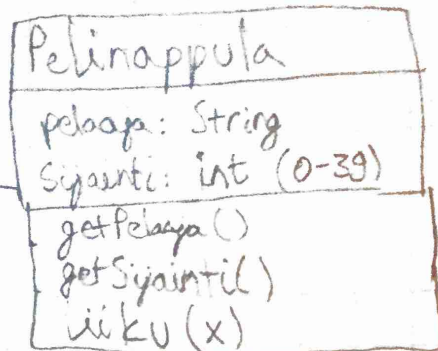 Pelinappula
pelaaja: String
Sijainti: int (0-39)
getPelaaja()
getSijainti()
liiku(x)